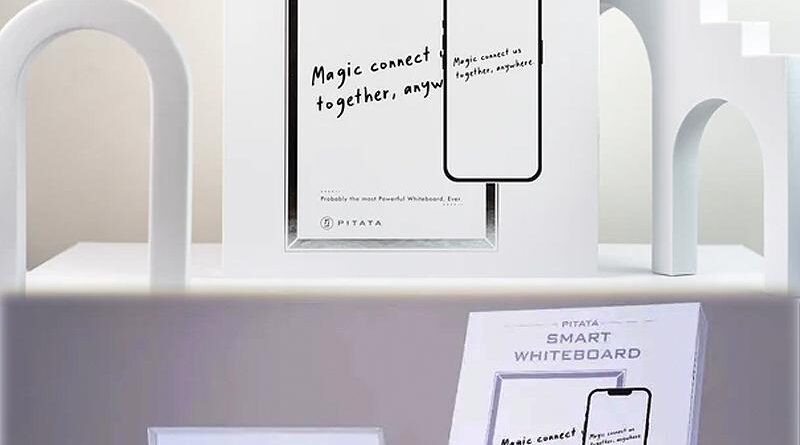 Magic connect
together, anyw
Magic connect us
together, anywhere.
Probably the most Powerful Whiteboard, Ever.
PITATA
PITATA
SMART
WHITEBOARD
Magic connect
Magic connect us
together, anywhere.